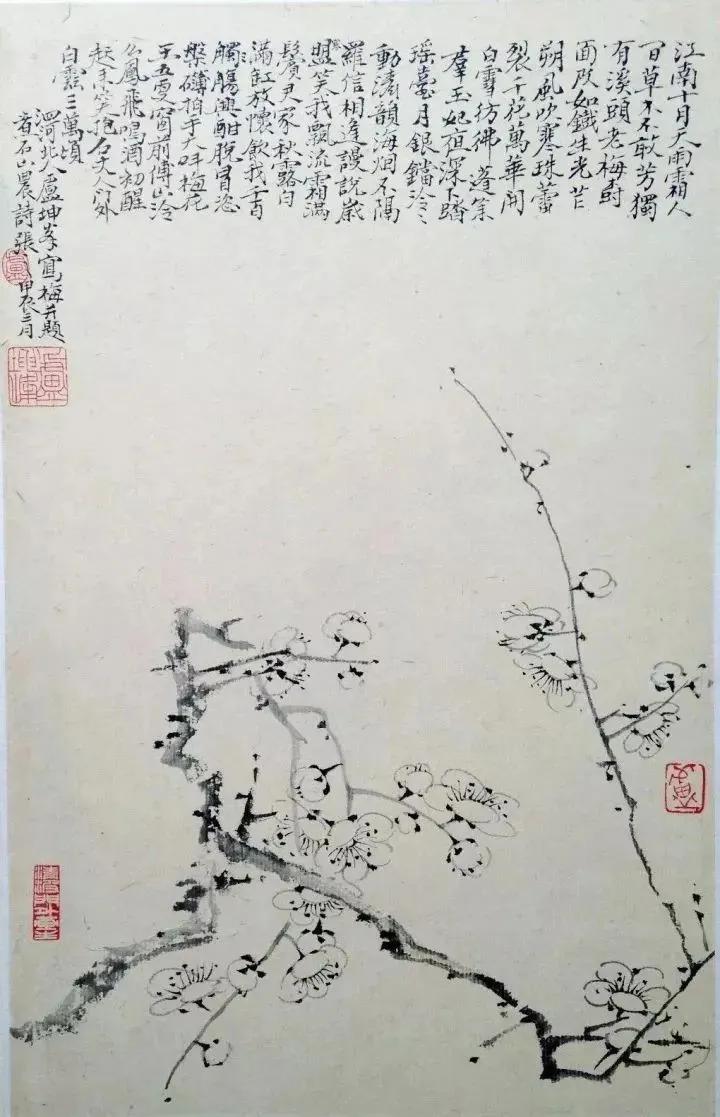 江南十月天雨霜人
間草木不敢芳獨
有溪頭老梅樹
面皮如鐵生光芒
朔風吹寒珠蕾
裂千花萬華開
白雪彷彿蓬萊
羣玉妃夜深下踏
瑶臺月銀鐺泠々
動清韻海烟不隔
羅信相逢謾説歲
盟笑我飄流霜滿
鬢君家秋露白
滿缸放懷飲我千百
觴興酣脱冒恣
槃礴拍手大叫梅花
王五更窗前博山泠
么鳳飛鳴酒初醒
起來笑抱石丈人門外
白雲三萬頃
泗河北人盧坤峯寫梅并題
者石山農詩張
甲辰三月
盧